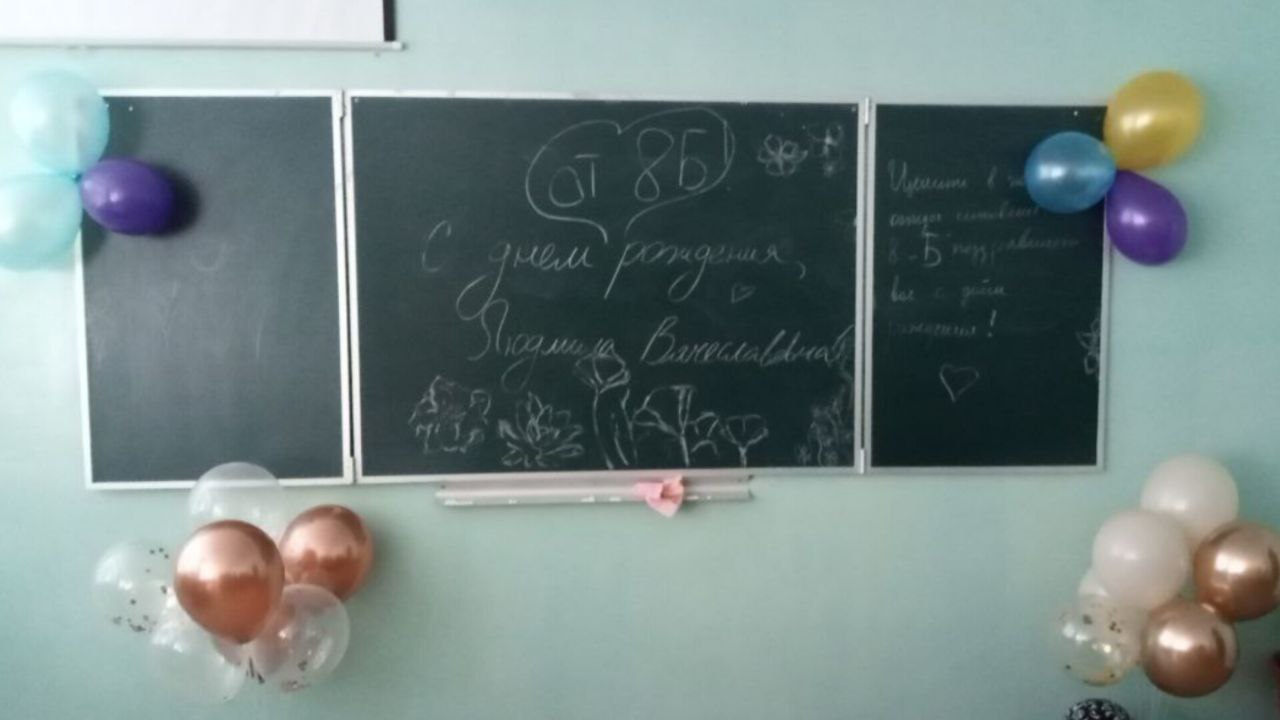 от 8Б
С днем рождения,
Людмила Вячеславовна
8-Б поздравляет
вас с днём
рождения!